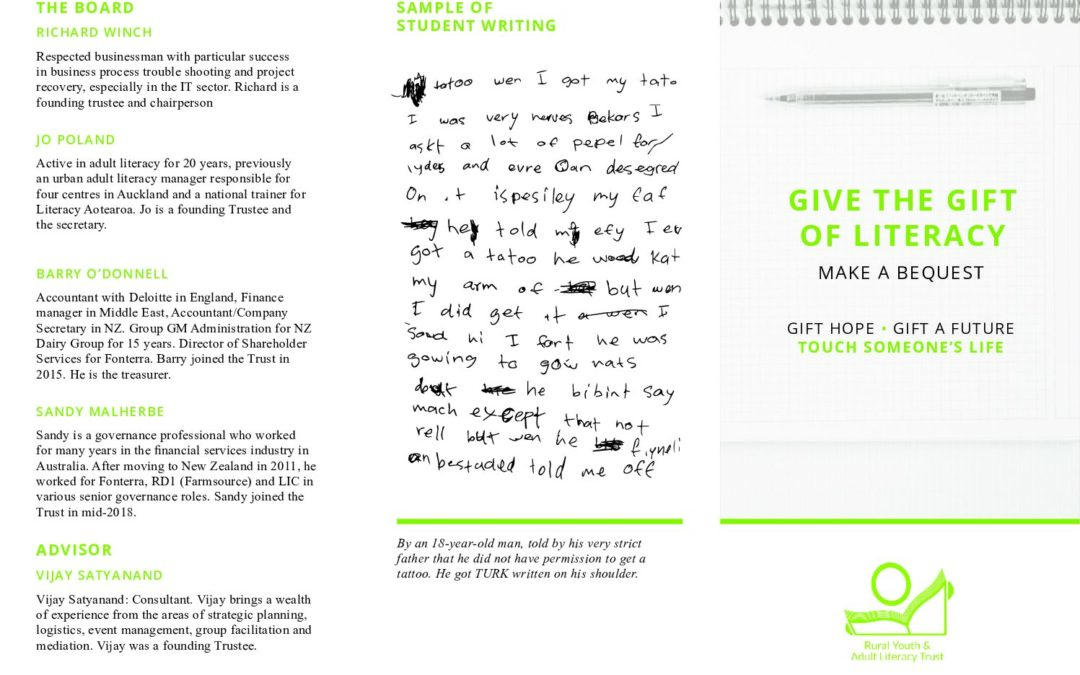 THE BOARD
RICHARD WINCH
Respected businessman with particular success
in business process trouble shooting and project
recovery, especially in the IT sector. Richard is a
founding trustee and chairperson
JO POLAND
Active in adult literacy for 20 years, previously
an urban adult literacy manager responsible for
four centres in Auckland and a national trainer for
Literacy Aotearoa. Jo is a founding Trustee and
the secretary.
BARRY O’DONNELL
Accountant with Deloitte in England, Finance
manager in Middle East, Accountant/Company
Secretary in NZ. Group GM Administration for NZ
Dairy Group for 15 years. Director of Shareholder
Services for Fonterra. Barry joined the Trust in
2015. He is the treasurer.
SANDY MALHERBE
Sandy is a governance professional who worked
for many years in the financial services industry in
Australia. After moving to New Zealand in 2011, he
worked for Fonterra, RD1 (Farmsource) and LIC in
various senior governance roles. Sandy joined the
Trust in mid-2018.
ADVISOR
VIJAY SATYANAND
Vijay Satyanand: Consultant. Vijay brings a wealth
of experience from the areas of strategic planning,
logistics, event management, group facilitation and
mediation. Vijay was a founding Trustee.
SAMPLE OF
STUDENT WRITING
tatoo wen I got my tato
I was very nerves Bekors I
askt a lot of pepel for
iydes and evre Oan desegred
On it ispesiley my faf
he told my efy I ev
got a tatoo he wood kat
my arm of but wen
I did get it I
Sond hi I fort he was
gowing to gow nats
he bibint say
mach except that not
rell but wen he fiyneli
anbestaded told me off
By an 18-year-old man, told by his very strict
father that he did not have permission to get a
tattoo. He got TURK written on his shoulder.
GIVE THE GIFT
OF LITERACY
MAKE A BEQUEST
GIFT HOPE • GIFT A FUTURE
TOUCH SOMEONE’S LIFE
Rural Youth &
Adult Literacy Trust